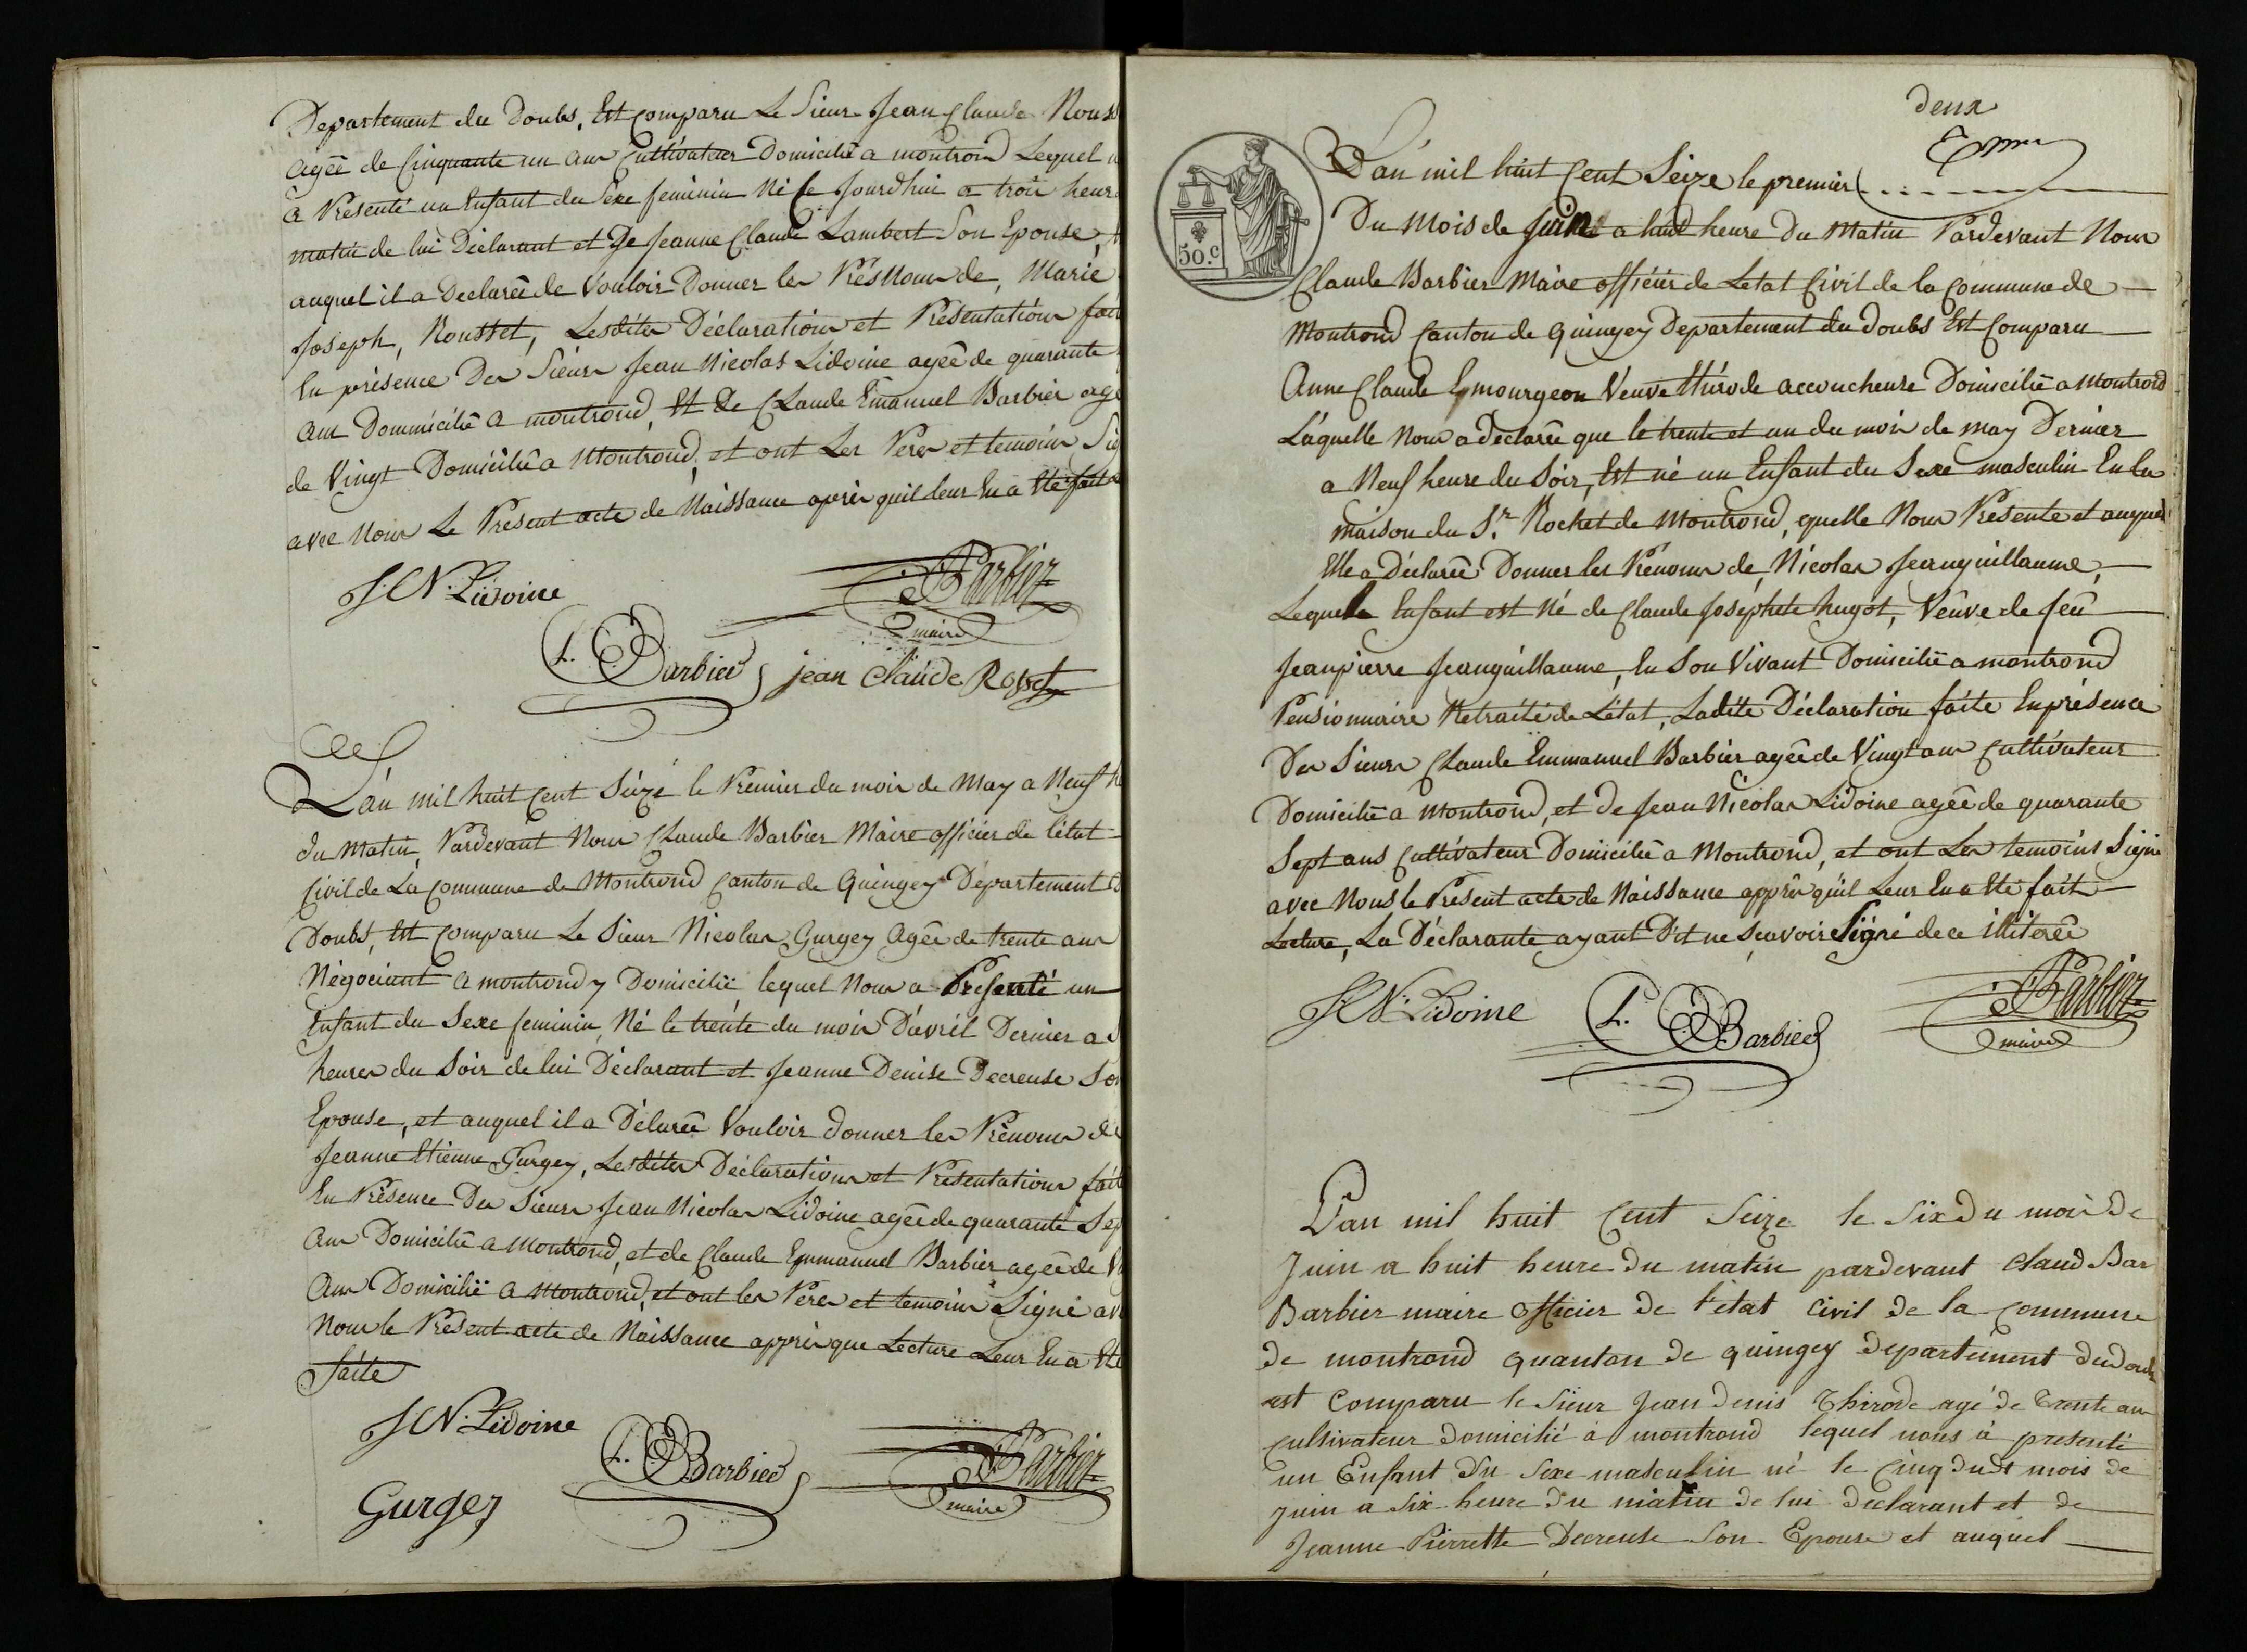 Departement du Doubs, Est comparu Le Sieur Jean Claude Rouss
agée de Cinquante un ans Cultivateur Domicilié a montrond Lequel n
a Présenté un Enfant du Sexe feminin Né Ce Jourdhui a trois heur
matin de lui Déclarant et De Jeanne Claude Lambert Son Epouse,
auquel il a Declarée de Vouloir Donner les Prés Noms de, Marie
Joseph, Rousset, Lesdites Déclarations et Présentations fait
En présence Des Sieurs Jean Nicolas Lidoine agée de quarante
ans Dommicilié a montrond, Et De Claude Emanuel Barbier age
de Vingt Domicilié a Montrond, et ont Les Peres et temoins Sig
avec Nous Le Présent acte de Naissance après quil leur En a Eté fait
J. N. Lidoine
Barbier
maire
Barbier
jean Claude Rosset
L'an mil huit Cent Seize le Premier du mois de May a Neuf h
du Matin, Pardevant Nous Claude Barbier Maire officier de l'état
Civil de La Commune de Montrond Canton de Quingey Département d
Doubs, Est Comparu Le Sieur Nicolas Gurgey Agée de trente ans
Négociant a montrond y Domicilié lequel Nous a Présenté un
Enfant du Sexe feminin, Né le trente du mois D'avril Dernier a S
heures du Soir de lui Déclarant et Jeanne Denise Decreuse So
Epouse, et auquel il a Délarée Vouloir donner les Prénoms de
Jeanne Etienne Gurgey, Lesdites Declarations et Présentations fait
En Présence Des Sieurs Jean Nicolas Lidoine agée de quarante Sep
Ans Domicilié a Montrond, et de Claude Emmanuel Barbier agée de Vi
Ans Domicilié a Montrond, et ont les Peres et temoins Signé av
Nous le Présent acte de Naissance apprès que Lecture Leur En a Eté
faite
J. N. Lidoine
Barbier
Barbier
maire
Gurgey
deux
50.c
L'an mil huit Cent Seize le premier
Du Mois de Juin a huit heure Du Matin Pardevant Nous
Claude Barbier Maire officier de Letat Civil de la Commune de
Montrond Canton de Quingey Departement du Doubs Est Comparu
Anne Claude Eymourgeon Veuve thirode accoucheure Domiciliée a Montrond
Láquelle Nous a declarée que le trente et un du mois de may Dernier
a Neuf heure du Soir, Est né un Enfant du Sexe masculin En la
maison du S.r Rochet de Montrond, quelle Nous Présente et auquel
Elle a Déclarée Donner les Prénoms de, Nicolas Jeanguillaume,
Lequele Enfant est Né de Claude Joséphte hugot, Veûve de feû
Jeanpierre Jeanguillaume, En Son Vivant Domicilié a montrond
Pensionnaire Retraité de L'état, Ladite Déclaration faite En présence
Des Sieurs Claude Emmanuel Barbier agée de Vingt ans Cultivateur
Domicilié a Montrond, et de Jean Nicolas Lidoine agée de quarante
Sept ans Cultivateur Domicilié a Montrond, et ont Les temoins Signé
avec Nous le Présent acte de Naissance apprês qu'il Leur En a Eté fait
Lecture, La Déclarante ayant Dit ne Sçavoir Signé de ce illiterée
J. N. Lidoine
Barbier
Barbier
maire
L'an mil huit Cent Seize le Six Du mois De
Juin a huit heure Du matin pardevant Claud Bar
Barbier maire officier De l'état Civil De la Commune
De montrond quanton De quingey Departement du doubs
est Comparu le Sieur Jean Denis Thirode agé De Trente an
Cultivateur Domicilié à montrond lequel nous à présenté
un Enfant Du Sexe masculin né le Cinq Dudt mois De
Juin a Six heure Du matin De lui Declarant et De
Jeanne Pierrette Decreuse Son Epouse et auquel